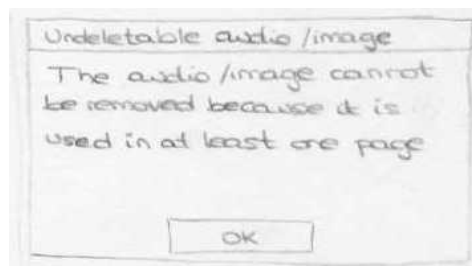 Undeletable audio/image
The audio/image cannot
be removed because it is
used in at least one page
OK